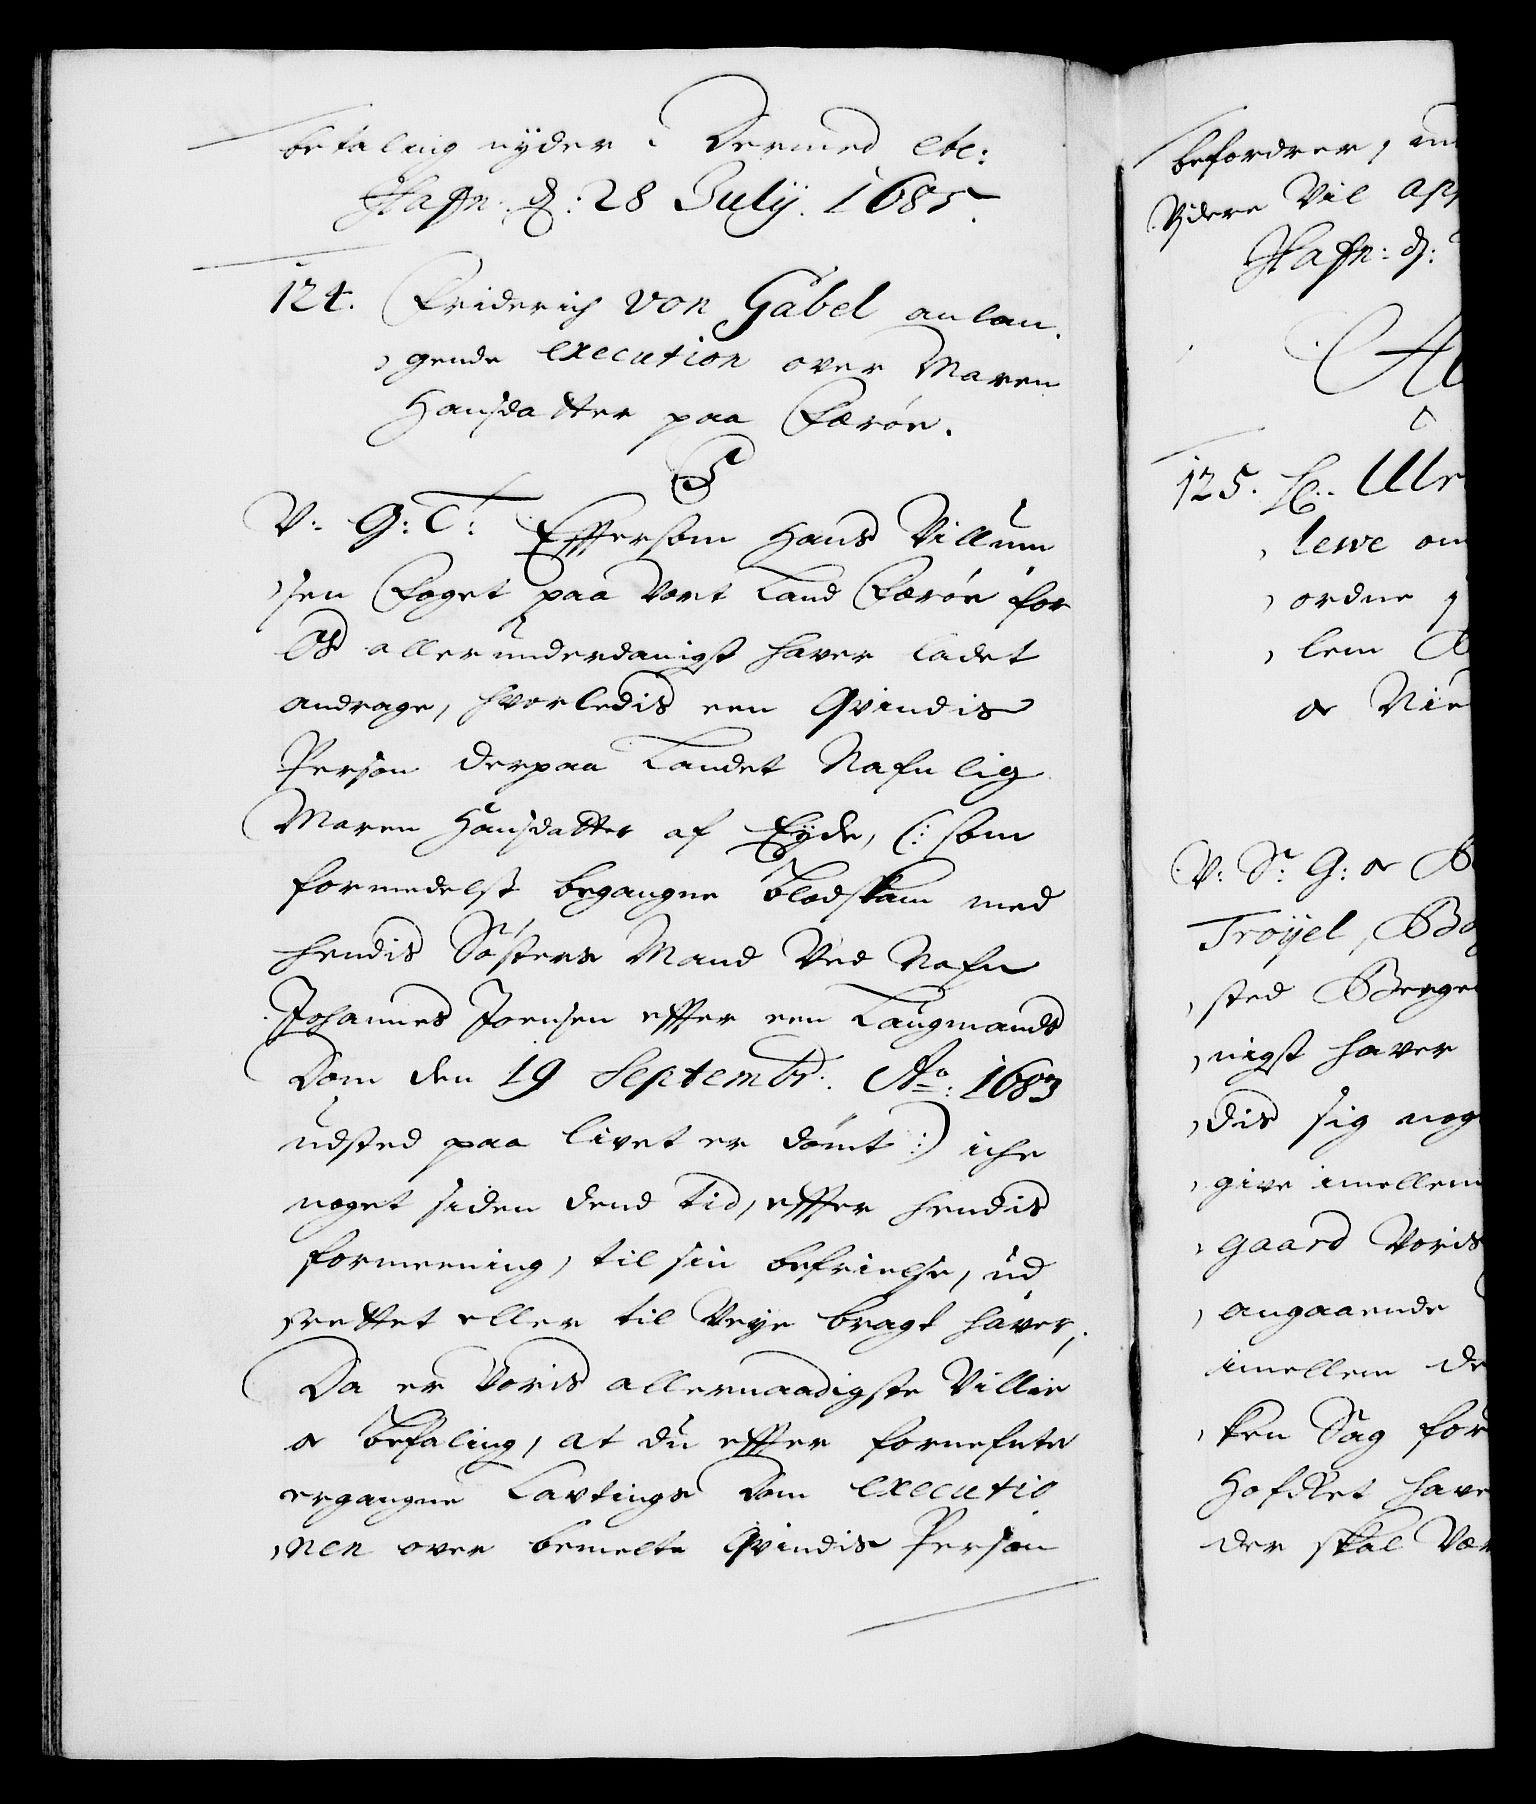 betaling nyder. Dermed etc:
Hafn. d: 28 Julij. 1685.
124. Friderich von Gabel anlan
gende execution over Maren
Hansdatter paa Færøe.
C5
V: G: T: Effersom Hans Villum
sen Foget paa Vort Land Færøe for
Os allerunderdanigst haver ladet
andrage, hvorledis een Qvindis
Person derpaa Landet Nafnlig
Maren Hansdatter af Eyde, (: som
formedelst begangne Blodskam med
hendis Søsters Mand Ved Nafn
Johannes Joensen effter een Laugmands
Dom den 19 Septembr: Ao: 1683
udsted paa livet er dømt :) iche
noget siden dend tid, effter hendis
formeening, til sin befrielse, ud
rettet eller til Veye bragt haver,
Da er Voris allernaadigste Villie
oc Befaling, at du effter fornefnte
ergangne Lavtings Dom executio
nen over bemelte Qvindis Person
befordrer,
Videre Vil
Hafn: d:
125. H: Ulr
lewe om
ordne
lem
oc Vie
V: Sr: G: oc B
Trøyel, B
sted Berge
nigst haver
dis sig nog
give imellem
gaard Voris
angaaende
imellem de
ken Sag for
HofRet have
der skal Vær